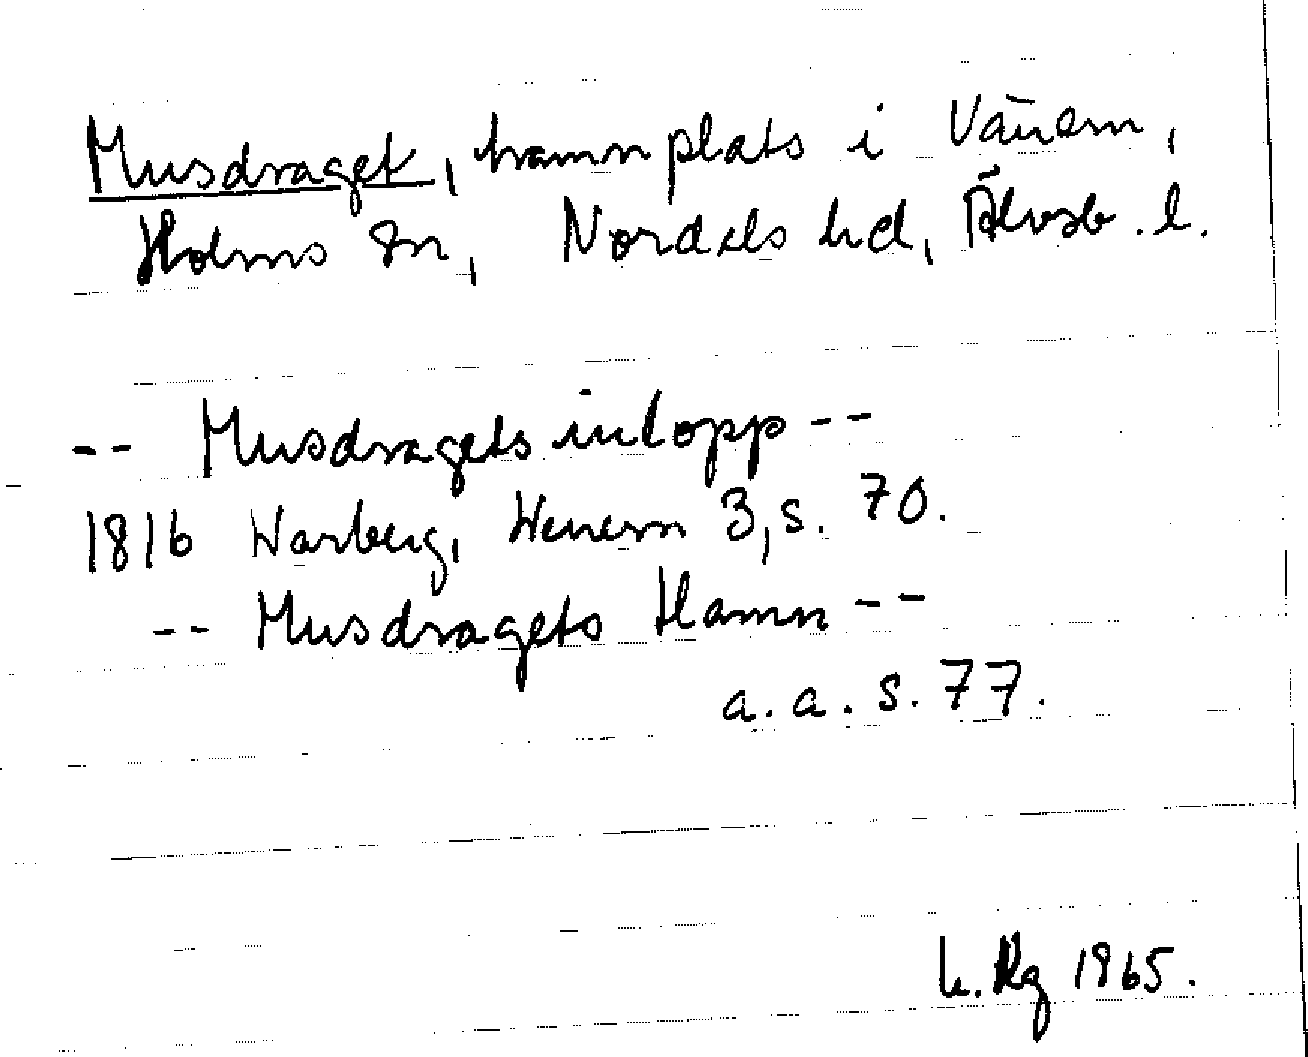 Musdraget, hamnplats i Vänern,
Holms sn, Nordals hd, Älvsb. l.
-- Musdragets inlopp --
1816 Warberg, Wenern 3, s. 70.
-- Musdragets Hamn --
a. a. s. 77.
Rg 1965.